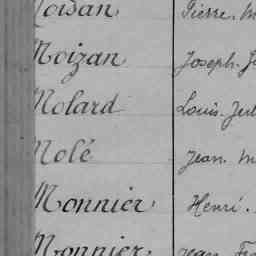 Moisan Pierre. M
Moizan Joseph. J
Molard Louis. Jul
Molé Jean. M
Monnier Henri.
Monnier Jean Fr